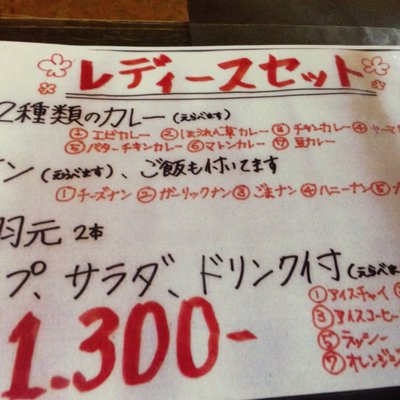 レディースセット
2種類のカレー(えらべます)
①エビカレー ②ほうれん草カレー ③チキンカレー ④キーマ
⑤バターチキンカレー ⑥マトンカレー ⑦豆カレー
ン(えらべます)、ご飯も付いてます
①チーズナン ②ガーリックナン ③ごまナン ④ハニーナン ⑤プ
羽元 2本
プ、サラダ、ドリンク付(えらべま
①アイスチャイ
③アイスコーヒー
1.300-
⑤ラッシー
⑦オレンジジ